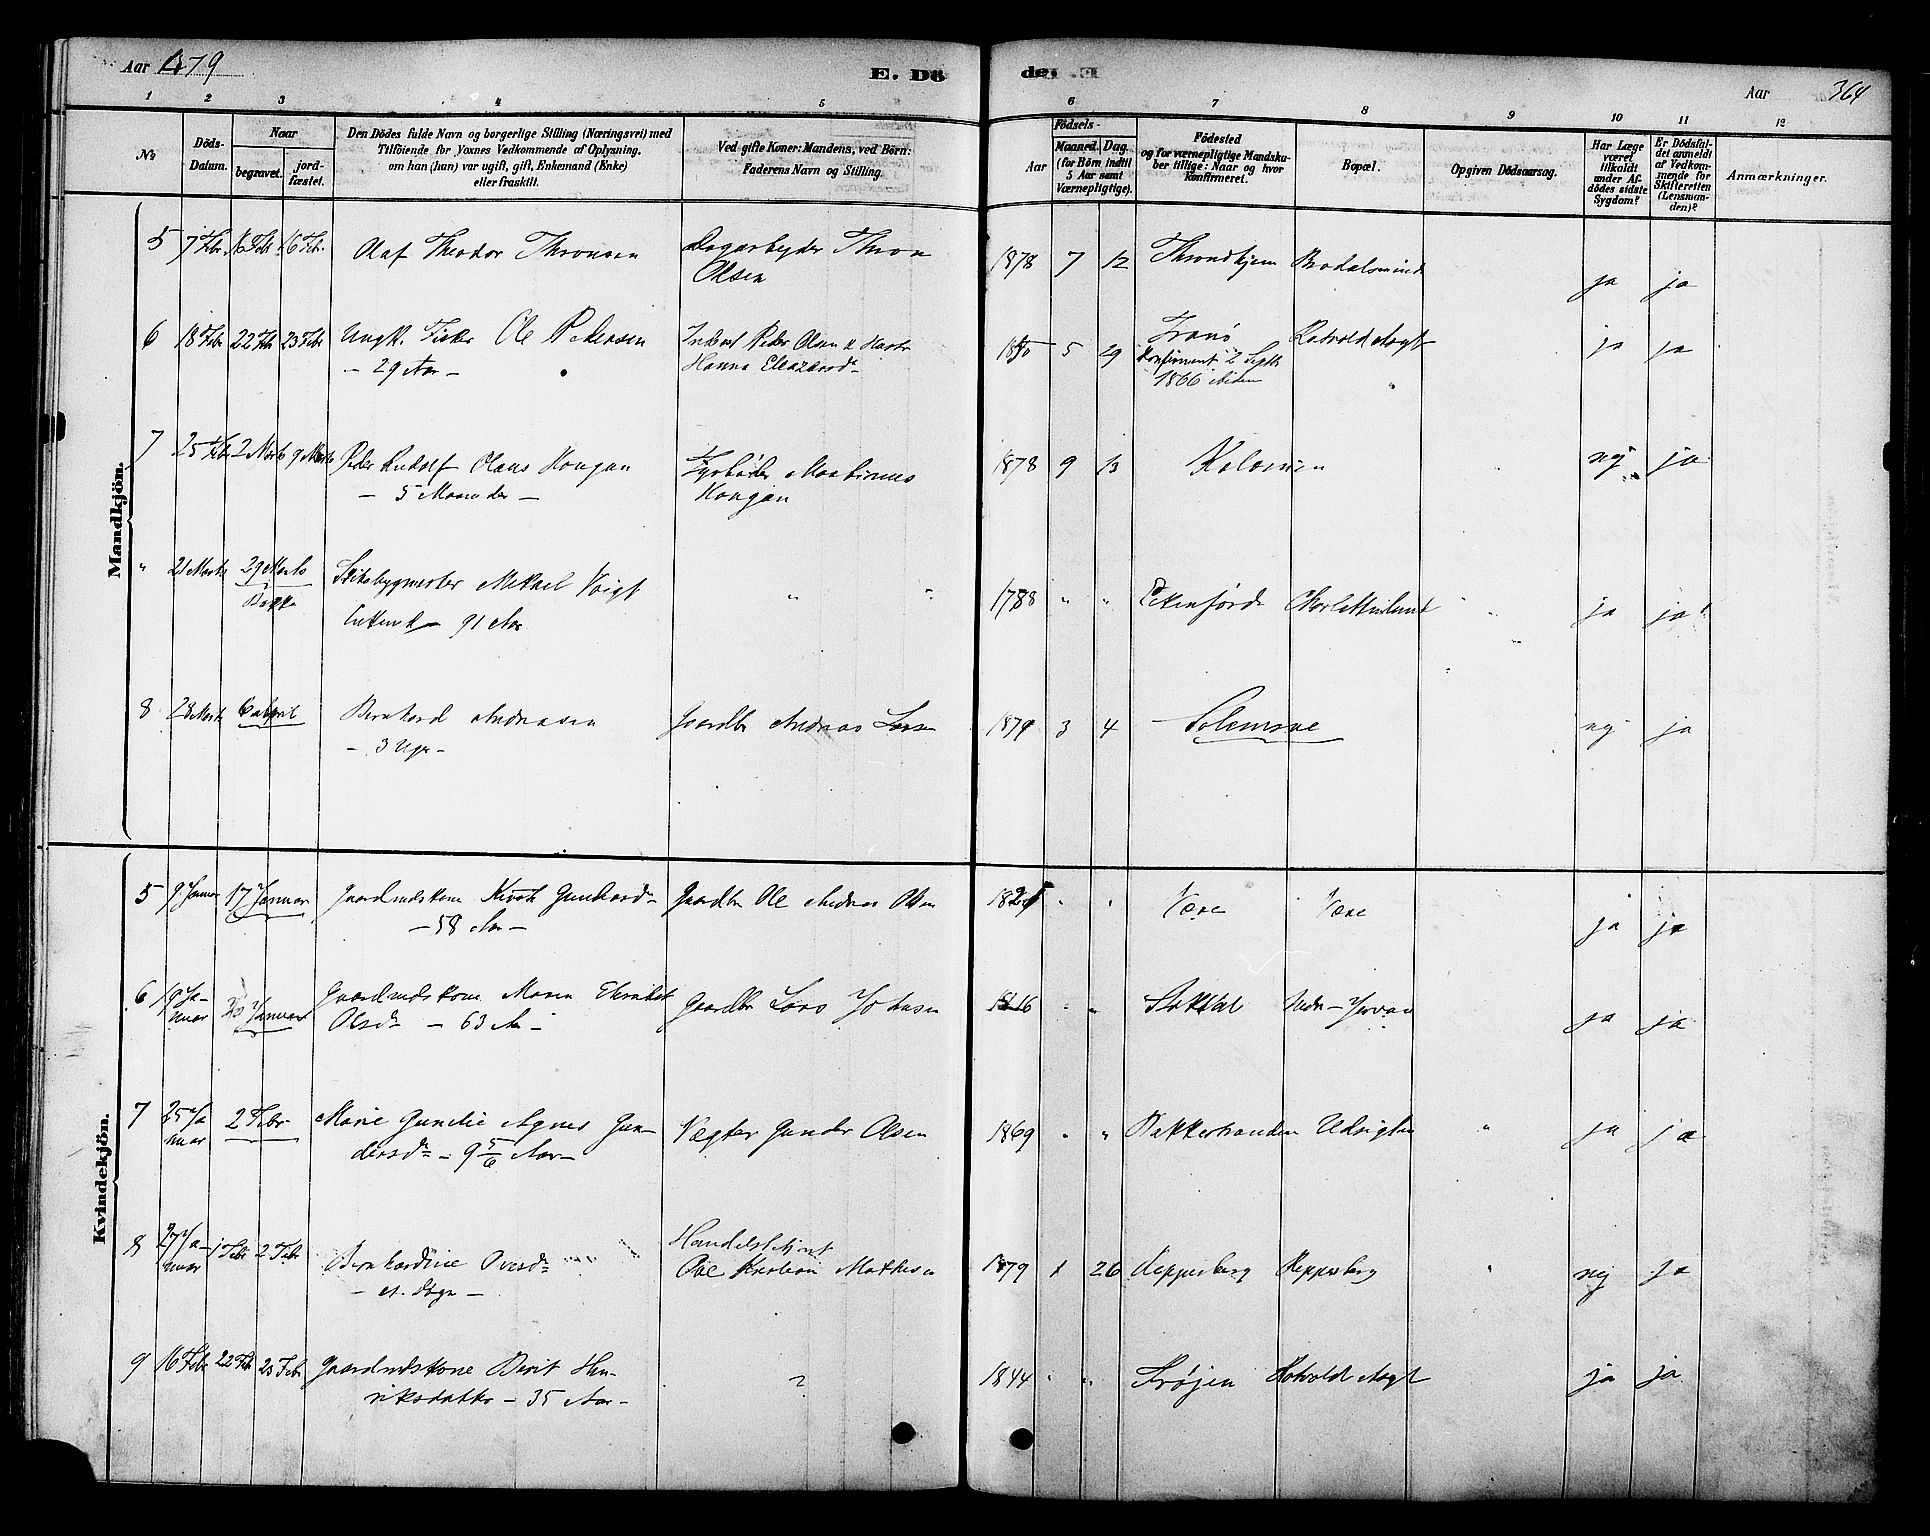 Aar 1879
E. Dö
de:
Aar 364
1 2 3 4 5 6 7 8 9 10 11 12
No
Döds-
Datum.
Naar
begravet.
jord-
fæstet.
Den Dödes fulde Navn og borgerlige Stilling (Næringsvei) med
Tilföiende for Voxnes Vedkommende af Oplysning,
om han (hun) var ugift, gift, Enkemand (Enke)
eller fraskilt.
Ved gifte Koner: Mandens, ved Börn:
Faderens Navn og Stilling.
Födsels-
Aar
Maaned.
Dag.
(for Börn indtil
5 Aar samt
Værnepligtige).
Födested
og for værnepligtige Mandska-
ber tillige: Naar og hvor
Konfirmeret.
Bopæl.
Opgiven Dödsaarsag.
Har Læge
været
tilkaldt
under Af-
dödes sidste
Sygdom?
Er Dödsfal-
det anmeldt
af Vedkom-
mende for
Skifteretten
(Lensman-
den)?
Anmærkninger.
Mandkjön.
5 7 Febr 16 Febr 16 Febr. Olaf Theodor Thronsen Dagarbeyder Thron
Olsen
1878 7 12 Throndhjem ja ja
6 18 Febr 22 Febr 23 Febr Ungk. Fisker Ole Pedersen Inderst Peder Olsen
- 29 Aar - Hanna Eleazarsdr
1850 5 29 Tranö
Konfirmeret 2 Septbr
1866
ja ja
7 25 Febr 2 Marts 9 Marts Peder Rudolf Claus Kongan
- 5 Maaneder -
Fyrböder Martinus
Kongan
1878 9 13 nej ja
" 21 Marts 29 Marts
Bakke
Skibsbygmester Mikael Voigt
Enkem - 91 Aar
" "
1788 " " Ekenförde Charlottenlund ja ja
8 28 Marts 6 April Bernhard Andreasen
- 3 Uger -
Gaardbr Andreas Larsen
1879 3 4 nej ja
Kvindekjön.
5 9 Januar 17 Januar Gaardmdskone Gunhardr
- 58 Aar -
Gaardbr Ole Andreas Olsen
1821 " " Være Være ja ja
6 19 Ja-
nuar
Januar Gaardmdskone Maren Elisabet
Olsdr - 63 Aar -
Gaardbr Lars Johnsen
1816 " " Stokdal ja ja
7 25 Ja
nuar
2 Febr Marie Gunelie Agnes Gun-
dersdr - 9 5/6 Aar -
Vægter Gunder Olsen
1869 " " Bakkestranden Udsigten " ja ja
8 27 Ja-
nuar
1 Febr 2 Febr Bernhardine Ovesdr
- et. Døgn -
Handelsbetjent
Ove Kristian Mathisen
1879 1 26 Reppesberg Reppesberg " nej ja
9 16 Febr 22 Febr 23 Febr Gaardmdskone Berit Hen-
riksdatter - 35 Aar -
?
1844 " " Frøjen ja ja